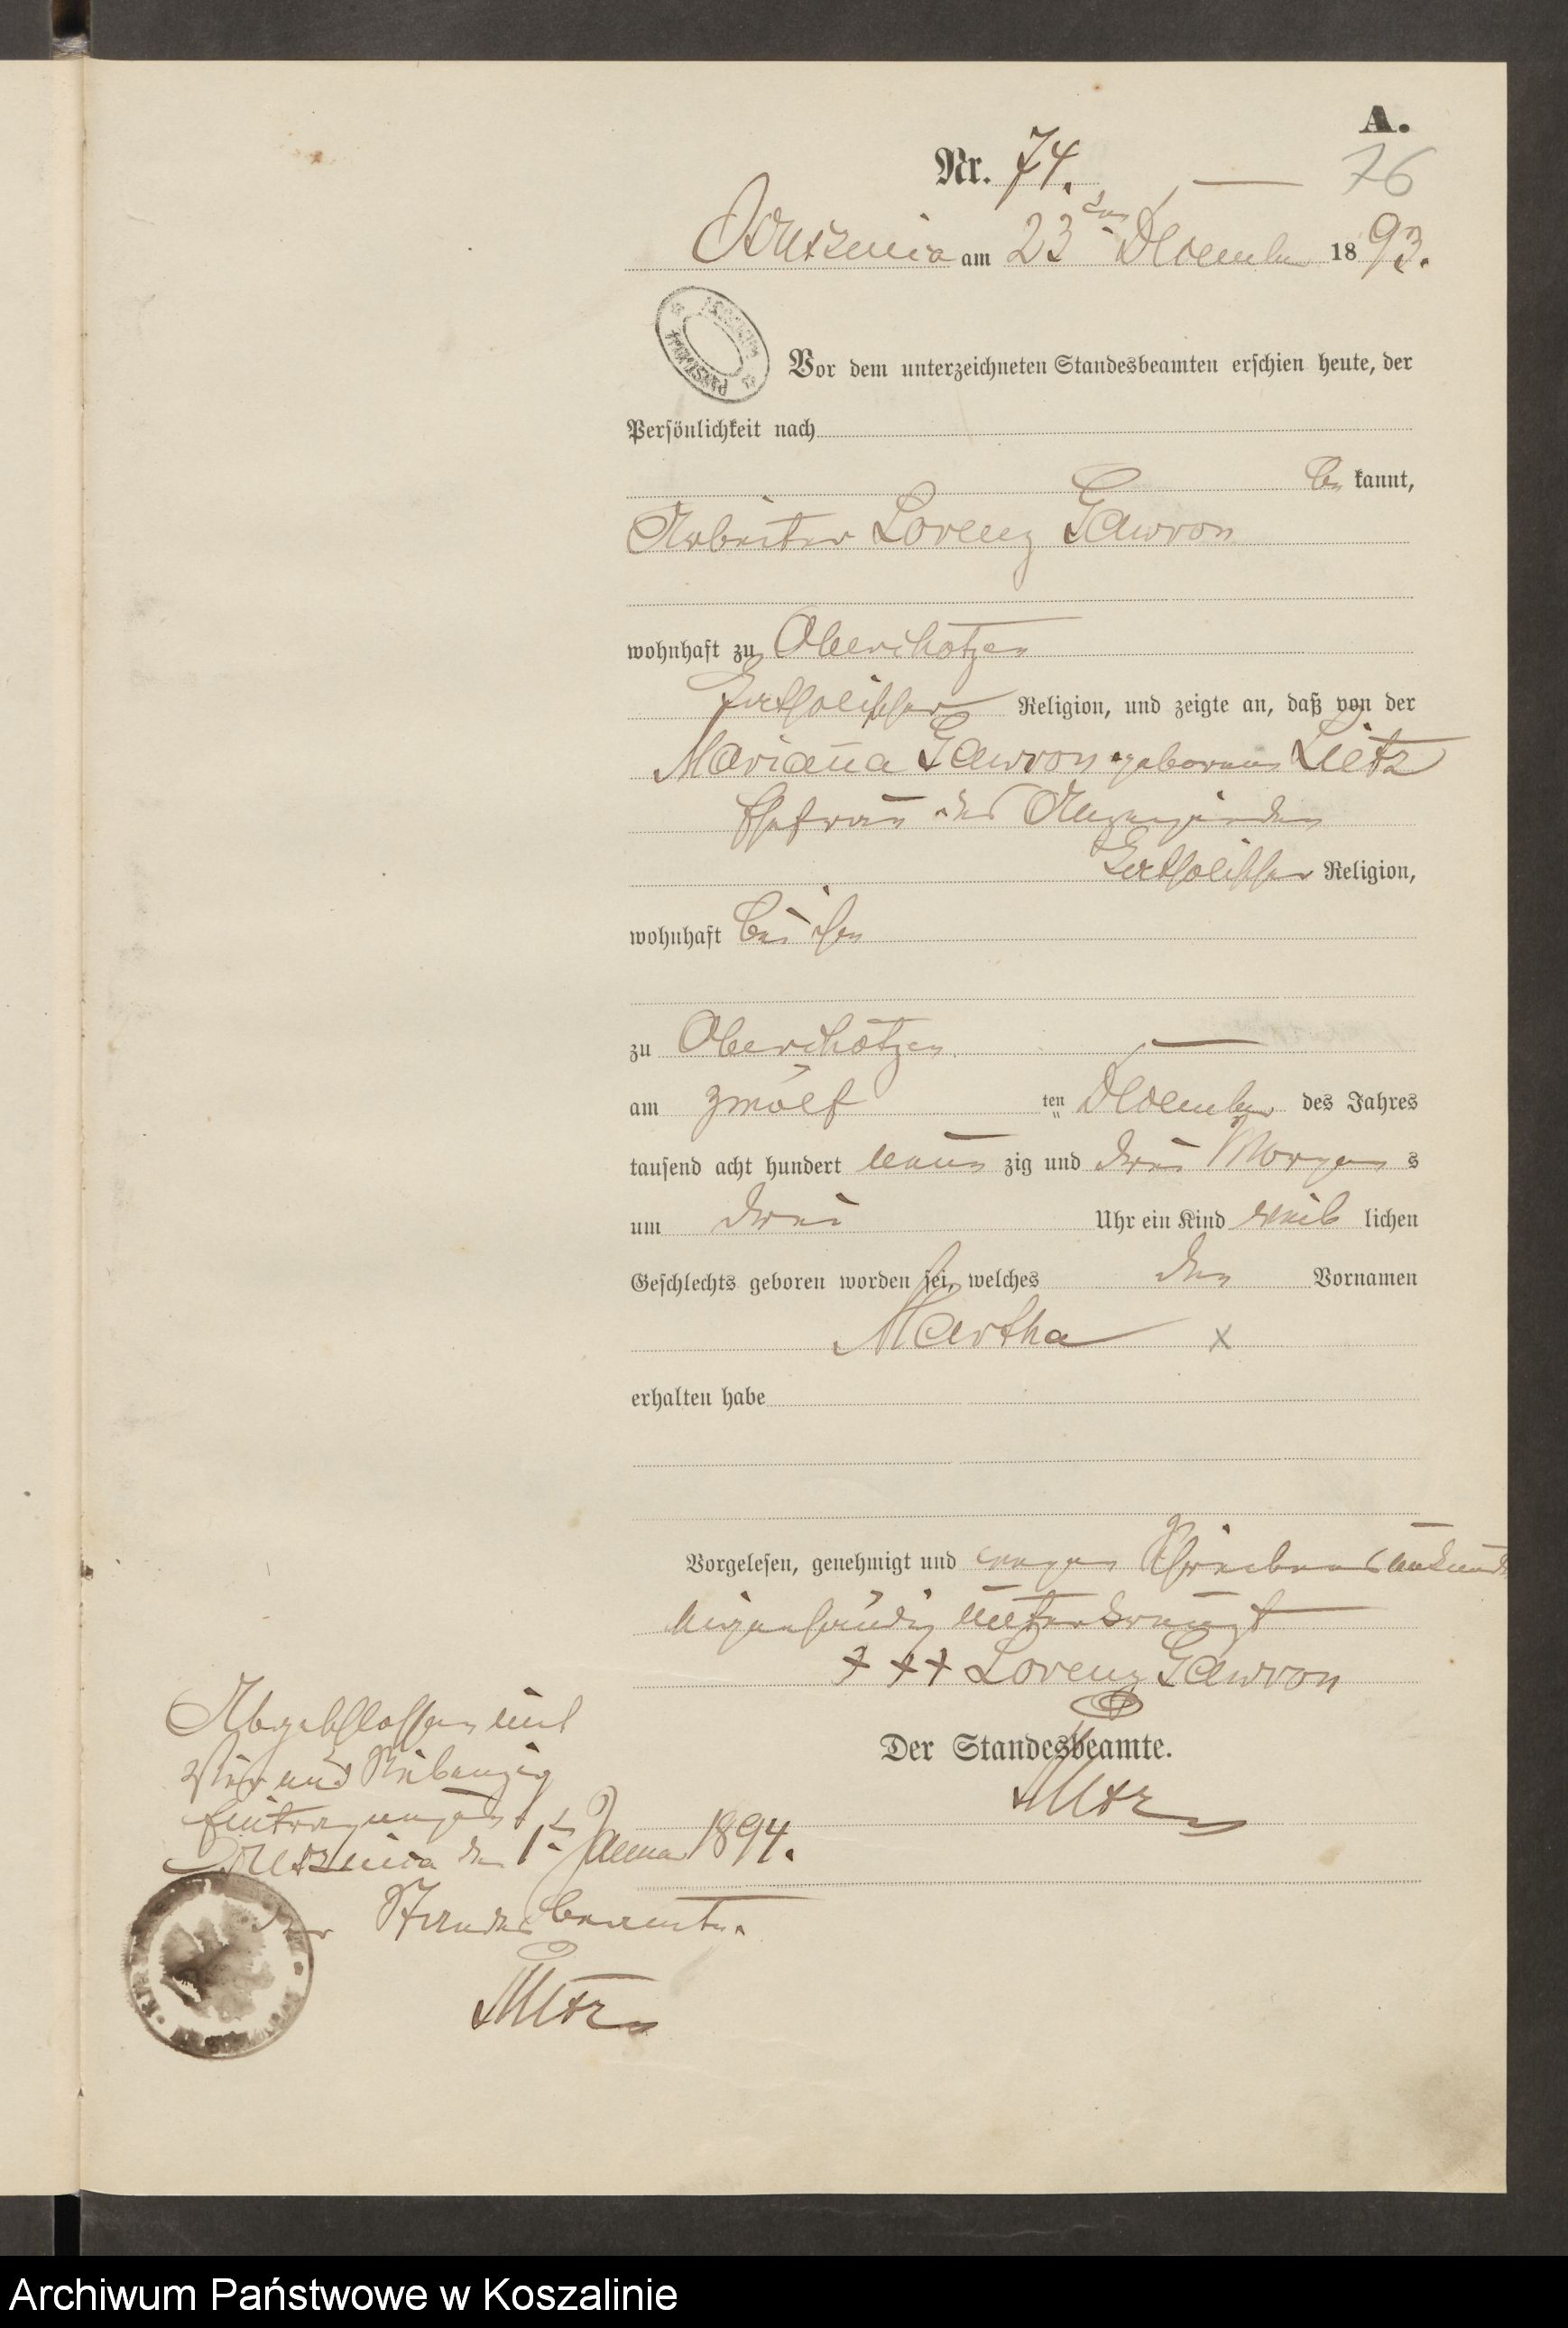 A.
Nr. 74.
76
am 23ten Dezember 1893.
Vor dem unterzeichneten Standesbeamten erschien heute, der
Persönlichkeit nach
be kannt,
Arbeiter Lorenz Gawron
wohnhaft zu Oberchotzen
katholischer Religion, und zeigte an, daß von der
Mariana Gawron geborene Lietz
Ehefrau des Anzeigenden
katholischer Religion,
wohnhaft bei ihm
zu Oberchotzen
am zwölf ten Dezember des Jahres
tausend acht hundert neun zig und drei Morgens
um drei Uhr ein Kind weib lichen
Geschlechts geboren worden sei, welches den Vornamen
Martha x
erhalten habe
Vorgelesen, genehmigt und wegen Schreibens
eigenhändig unterkreuzt
+++ Lorenz Gawron
Der Standesbeamte.
Abgeschlossen mit
vier und siebenzig
Eintragungen
den 1t Januar 1894.
Der Standesbeamte.
Archiwum Państwowe w Koszalinie